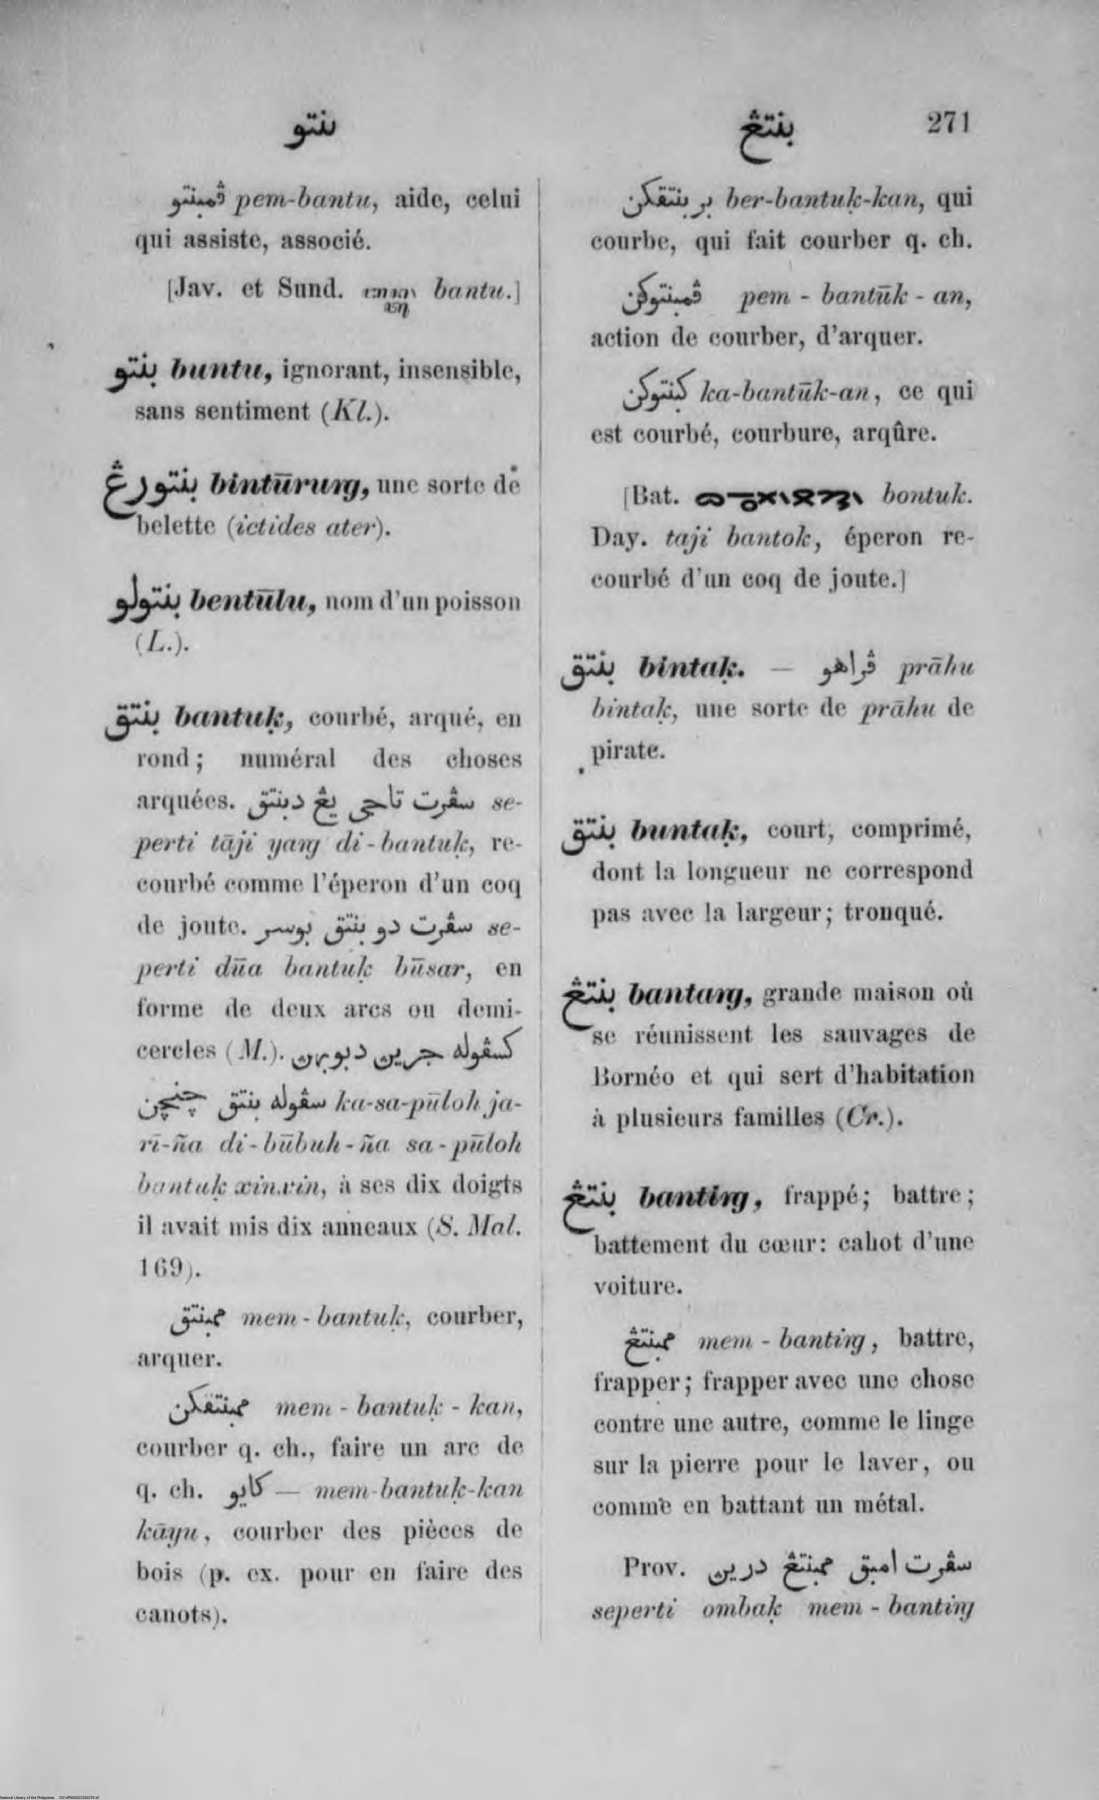 بنتو
بنتڠ 271
ڤمبنتو pem-bantu, aide, celui
qui assiste, associé.
[Jav. et Sund. bantu.]
بنتو buntu, ignorant, insensible,
sans sentiment (Kl.).
بنتورڠ bintūruṅg, une sorte de
belette (ictides ater).
بنتولو bentūlu, nom d'un poisson
(L.).
بنتق bantuḳ, courbé, arqué, en
rond; numéral des choses
arquées. سڤرت تاجي يڠ دبنتق se-
perti tāji yaṅg di-bantuḳ, re-
courbé comme l'éperon d'un coq
de joute. سڤرت دو بنتق بوسر se-
perti dūa bantuḳ būsar, en
forme de deux arcs ou demi-
cercles (M.). کسڤوله جرين دبوبهن
سڤوله بنتق چنچن ka-sa-pūloh ja-
rī-ña di-būbuh-ña sa-pūloh
bantuḳ xinxin, à ses dix doigts
il avait mis dix anneaux (S. Mal.
169).
ممبنتق mem-bantuḳ, courber,
arquer.
ممبنتقکن mem-bantuḳ-kan,
courber q. ch., faire un arc de
q. ch. کايو — mem-bantuḳ-kan
kāyu, courber des pièces de
bois (p. ex. pour en faire des
canots).
بربنتقکن ber-bantuḳ-kan, qui
courbe, qui fait courber q. ch.
ڤمبنتوکن pem-bantūk-an,
action de courber, d'arquer.
کبنتوکن ka-bantūk-an, ce qui
est courbé, courbure, arqûre.
[Bat. bontuk.
Day. taji bantok, éperon re-
courbé d'un coq de joute.]
بنتق bintaḳ. — ڤراهو prāhu
bintaḳ, une sorte de prāhu de
pirate.
بنتق buntaḳ, court, comprimé,
dont la longueur ne correspond
pas avec la largeur; tronqué.
بنتڠ bantaṅg, grande maison où
se réunissent les sauvages de
Bornéo et qui sert d'habitation
à plusieurs familles (Cr.).
بنتڠ bantiṅg, frappé; battre;
battement du cœur: cahot d'une
voiture.
ممبنتڠ mem-bantiṅg, battre,
frapper; frapper avec une chose
contre une autre, comme le linge
sur la pierre pour le laver, ou
comme en battant un métal.
Prov. سڤرت امبق ممبنتڠ درين
seperti ombaḳ mem-bantiṅg